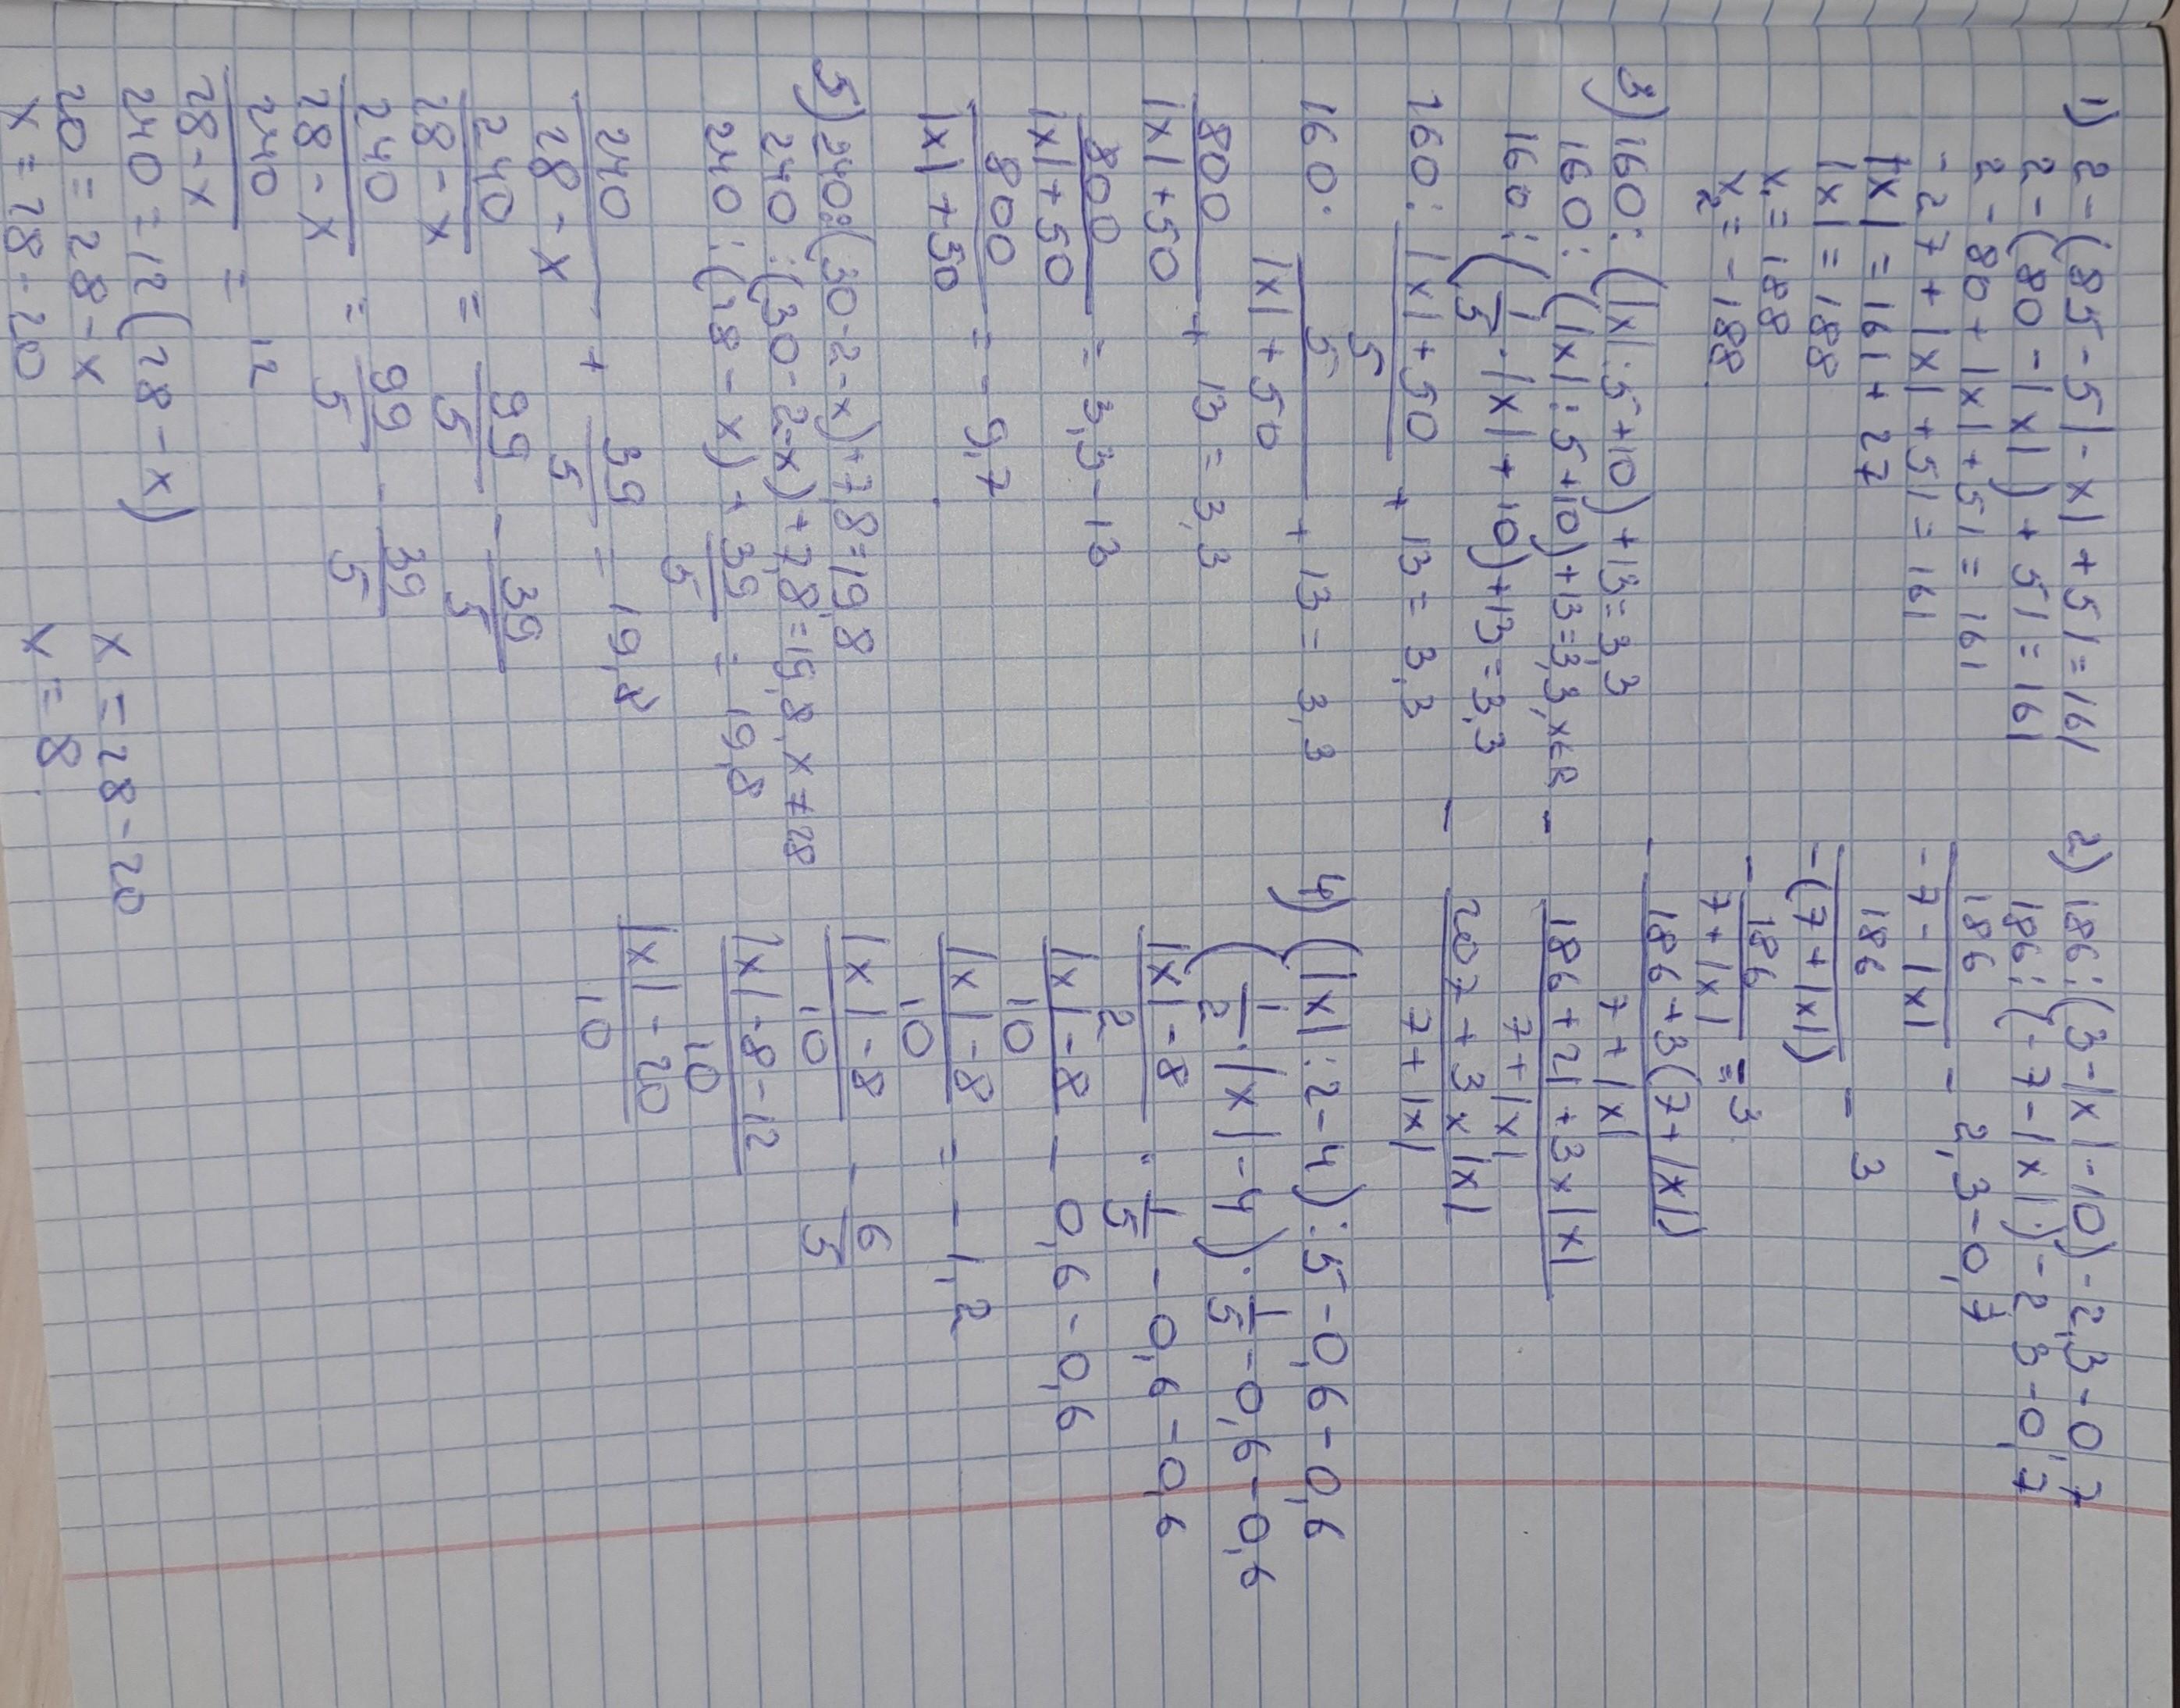 1) 2-(85-5|-x|+51=161
2-(80-|x|)+51=161
2-80+|x|+51=161
-27+|x|+51=161
|x|=161+27
|x|=188
x₁=188
x₂=-188
2) 186:(3-|x|-10)-2,3-0,7
186:(-7-|x|)-2,3-0,7
186/(-7-|x|) - 2,3-0,7
186/(-(7+|x|)) - 3
-186/(7+|x|) = 3
-(186+3(7+|x|))/(7+|x|)
-(186+21+3x|x|)/(7+|x|)
-(207+3x|x|)/(7+|x|)
3) 160:(|x|:5+10)+13=3,3
160:(|x|:5+10)+13=3,3, x∈R
160:(1/5·|x|+10)+13=3,3
160:(|x|+50)/5+13=3,3
160·5/(|x|+50)+13=3,3
800/(|x|+50)+13=3,3
800/(|x|+50)=3,3-13
800/(|x|+50)=-9,7
4) (|x|:2-4):5-0,6-0,6
(1/2·|x|-4)·1/5-0,6-0,6
(|x|-8)/2·1/5-0,6-0,6
(|x|-8)/10-0,6-0,6
(|x|-8)/10=-1,2
(|x|-8)/10-6/5
(|x|-8-12)/10
(|x|-20)/10
5) 240:(30-2-x)+7,8=19,8
240:(30-2-x)+7,8=19,8, x≠28
240:(28-x)+39/5=19,8
240/(28-x)+39/5=19,8
240/(28-x)=99/5-39/5
240/(28-x)=99/5-39/5
240/(28-x)=12
240=12(28-x)
20=28-x
x=28-20
x=28-20
x=8